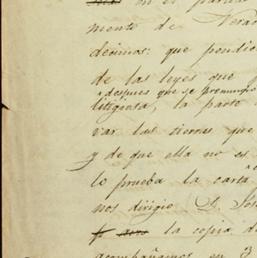 en el
mento de Vera
decimos: que pendie
de las leyes que
despues que se pronuncio
litigiosa, la parte
var las tierras que
y de que ella no es
lo prueba la carta
nos dirigio D. Jos
la copia de
acompañamos en 3